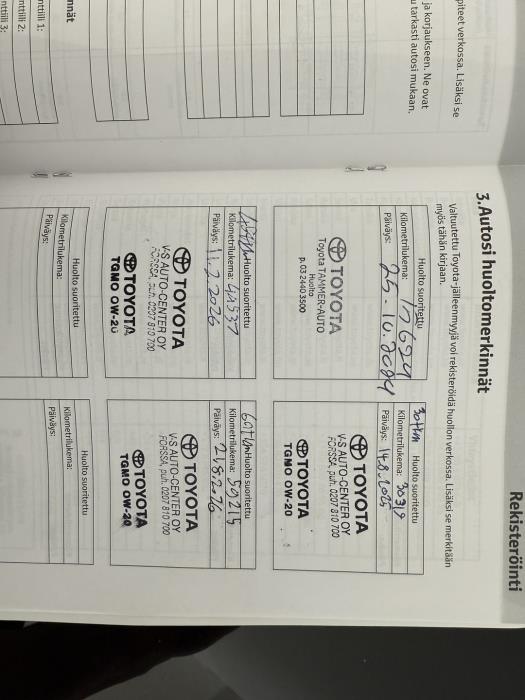 piteet verkossa. Lisäksi se
ja korjaukseen. Ne ovat
u tarkasti autosi mukaan.
nnät
nttiili 1:
nttiili 2:
nttiili 3:
Rekisteröinti
3. Autosi huoltomerkinnät
Valtuutettu Toyota-jälleenmyyjä voi rekisteröidä huollon verkossa. Lisäksi se merkitään
myös tähän kirjaan.
Huolto suoritettu
Kilometrilukema: 17629
Päiväys: 25.10.2024
TOYOTA
Toyota TAMMER-AUTO
Huolto
p. 03 2440 3500
30tkm Huolto suoritettu
Kilometrilukema: 30319
Päiväys: 14.8.2025
TOYOTA
V-S AUTO-CENTER OY
FORSSA, puh. 0207 810 700
TOYOTA
TGMO OW-20
Huolto suoritettu
Kilometrilukema: 44537
Päiväys: 11.2.2026
TOYOTA
V-S AUTO-CENTER OY
FORSSA, puh. 0207 810 700
TOYOTA
TGMO OW-20
60tkm Huolto suoritettu
Kilometrilukema: 59215
Päiväys: 21.8.2026
TOYOTA
V-S AUTO-CENTER OY
FORSSA, puh. 0207 810 700
TOYOTA
TGMO OW-20
Huolto suoritettu
Kilometrilukema:
Päiväys:
Huolto suoritettu
Kilometrilukema:
Päiväys: